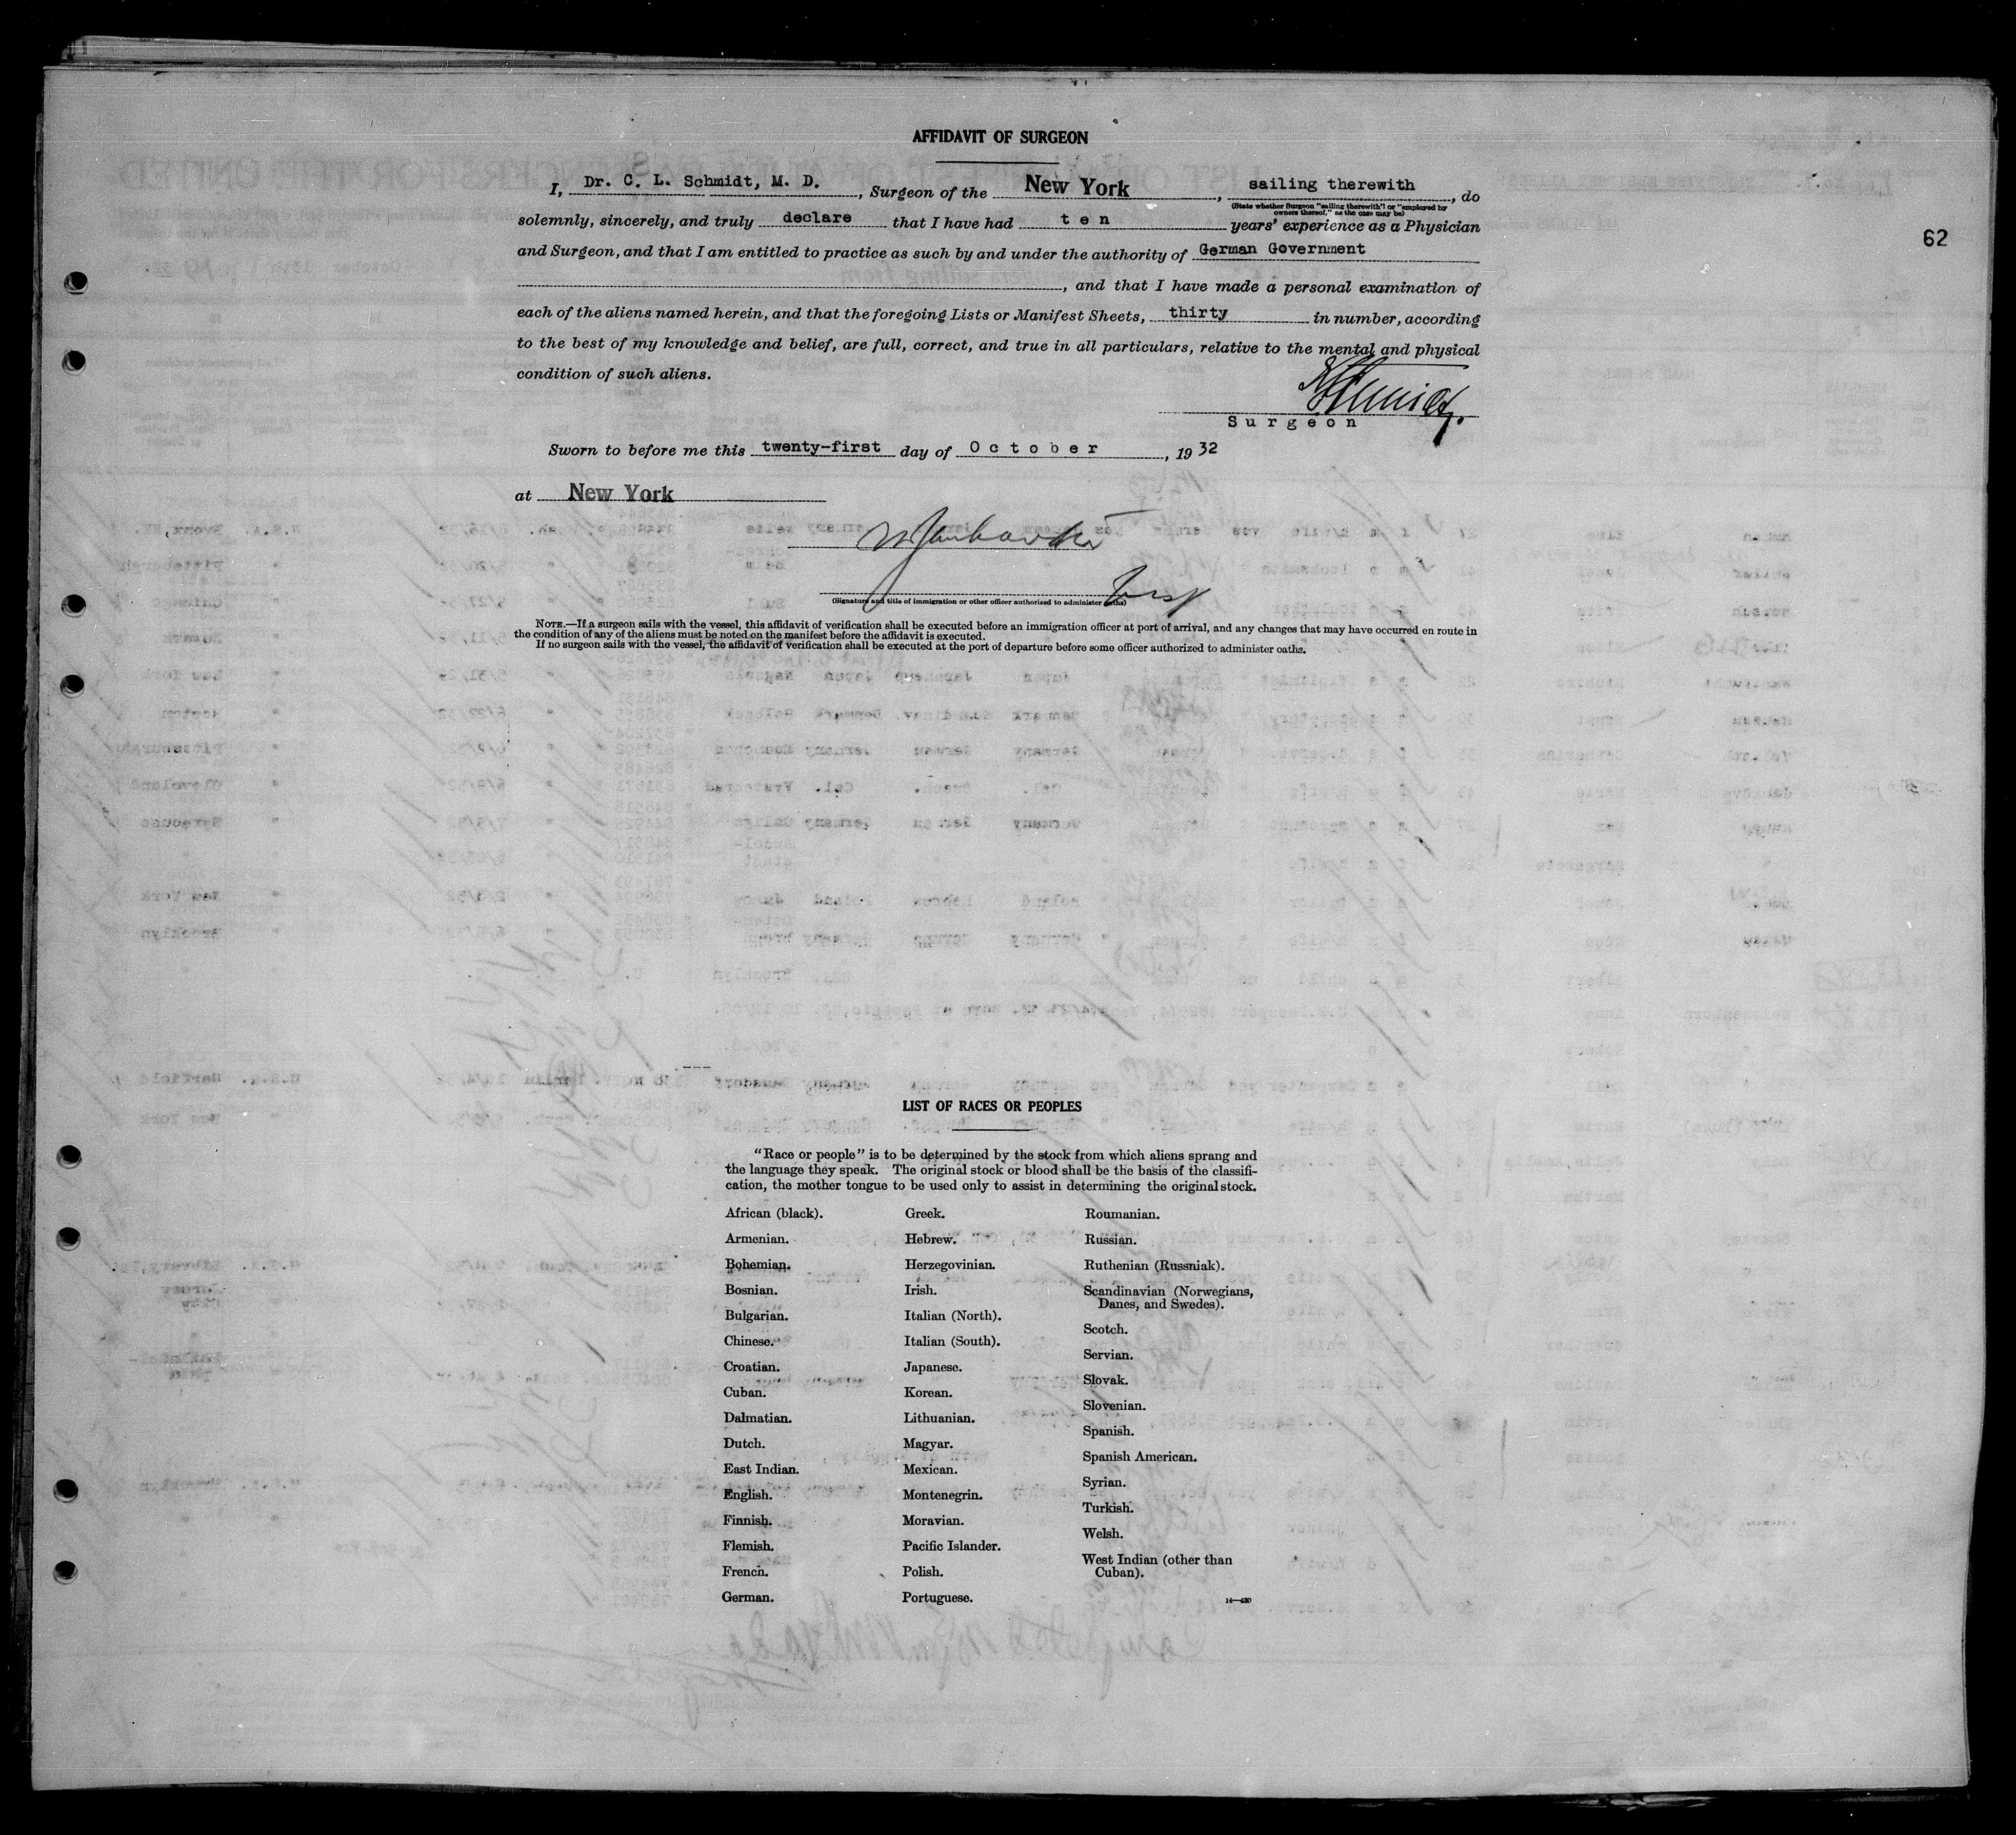 AFFIDAVIT OF SURGEON
I, Dr. C. L. Schmidt, M. D. , Surgeon of the New York , sailing therewith , do
(State whether Surgeon "sailing therewith" or "employed by
owners thereof," as the case may be)
solemnly, sincerely, and truly declare that I have had ten years' experience as a Physician
62
and Surgeon, and that I am entitled to practice as such by and under the authority of German Government
, and that I have made a personal examination of
each of the aliens named herein, and that the foregoing Lists or Manifest Sheets, thirty in number, according
to the best of my knowledge and belief, are full, correct, and true in all particulars, relative to the mental and physical
condition of such aliens.
Surgeon
Sworn to before me this twenty-first day of October , 19 32
at New York
(Signature and title of immigration or other officer authorized to administer oaths)
NOTE.—If a surgeon sails with the vessel, this affidavit of verification shall be executed before an immigration officer at port of arrival, and any changes that may have occurred en route in
the condition of any of the aliens must be noted on the manifest before the affidavit is executed.
If no surgeon sails with the vessel, the affidavit of verification shall be executed at the port of departure before some officer authorized to administer oaths.
LIST OF RACES OR PEOPLES
"Race or people" is to be determined by the stock from which aliens sprang and
the language they speak. The original stock or blood shall be the basis of the classifi-
cation, the mother tongue to be used only to assist in determining the original stock.
African (black).
Armenian.
Bohemian.
Bosnian.
Bulgarian.
Chinese.
Croatian.
Cuban.
Dalmatian.
Dutch.
East Indian.
English.
Finnish.
Flemish.
French.
German.
Greek.
Hebrew.
Herzegovinian.
Irish.
Italian (North).
Italian (South).
Japanese.
Korean.
Lithuanian.
Magyar.
Mexican.
Montenegrin.
Moravian.
Pacific Islander.
Polish.
Portuguese.
Roumanian.
Russian.
Ruthenian (Russniak).
Scandinavian (Norwegians,
Danes, and Swedes).
Scotch.
Servian.
Slovak.
Slovenian.
Spanish.
Spanish American.
Syrian.
Turkish.
Welsh.
West Indian (other than
Cuban).
14—420